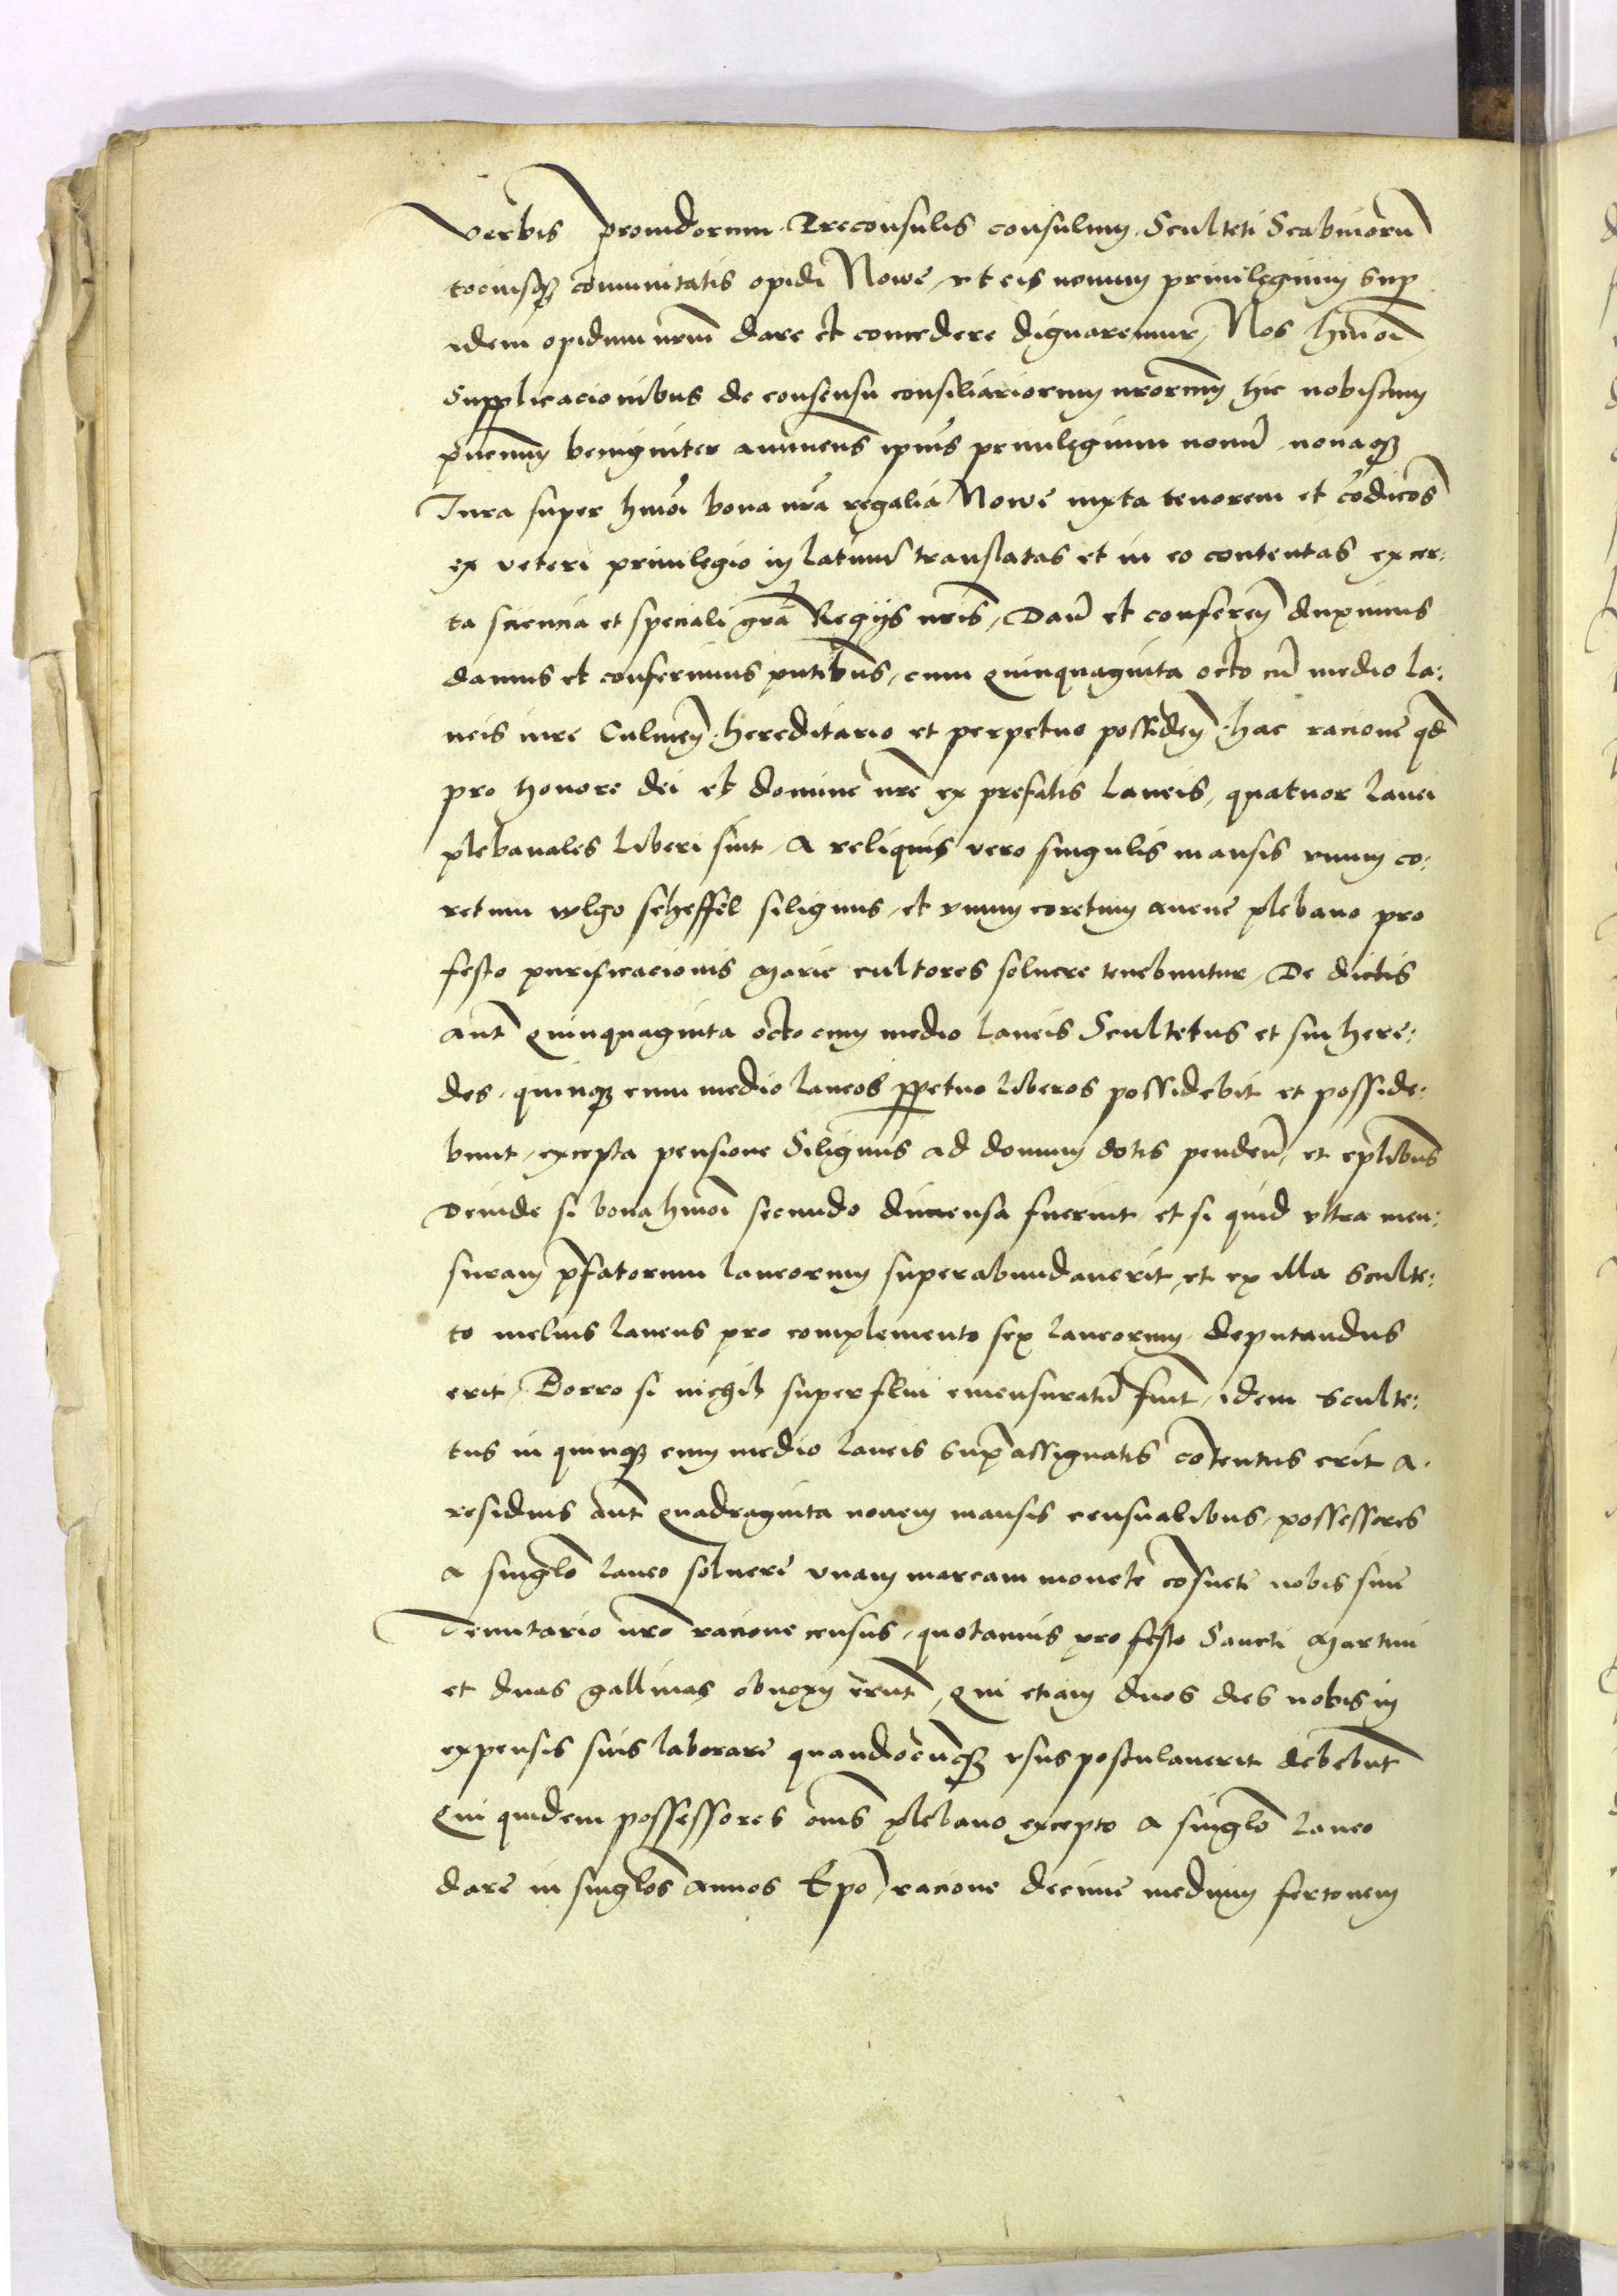 verbis prouidorum Preconsulis consulum Sculteti Scabinorū
tociusqȝ cōmunitatis opidi Nowe, vt eis nouum priuilegium sup
idem opidum nrm̄ dare et concedere dignaremur, Nos hmōi
Supplicacionibus de consensu consiliariorum nrorum hic nobiscum
pn̄cium benigniter annuen̄ ipius priuilegium nouū nouaqȝ
Iura super hmōi bona nrā regalia Nowe iuxta tenorem et cōdicōs
ex veteri priuilegio in latinū translatas et in eo contentas ex cer:
ta sciencia et speciali grā Regijs nrīs, Dan̄ et conferen̄ duximus
damus et conferimus pn̄tibus, cum quinquaginta octo cū medio la:
neis iure Culmen̄ hereditario et perpetuo possiden̄ hac racione qd̄
pro honore dei et domine nrē ex prefatis laneis, quatuor lanei
plebanales liberi sint, A reliquis vero singulis mansis vnum co:
retum wlgo scheffel siliginis, et vnum coretum auene plebano pro
festo purificacionis Marie cultores soluere tenebuntur, De dictis
aut̄ quinquaginta octo cum medio laneis Scultetus et sui here:
des, quinqȝ cum medio laneos ppetuo liberos possidebit et posside:
bunt, excepta pensione Siliginis ad domum dotis penden̄, et eplibus
Deinde si bona hmōi secundo dimensa fuerint, et si quid vltra men:
suram pfatorum laneorum superabundauerit, et ex illa Sculte:
to melius laneus pro complemento sex laneorum deputandus
erit, Porro si nichil superflui emensuratū fuit, idem Sculte:
tus in quinqȝ cum medio laneis sup assignatis cōtentus erit A
residuis aut̄ quadraginta nouem mansis censualibus, possessores
a singlo laneo soluere vnam marcam monete cōsuete nobis siue
Tenutario nrō racione census, quotannis pro festo Sancti Martini
et duas gallinas obnoxij erūt, Qui etiam duos dies nobis in
expensis suis laborare quandocūqȝ vsus postulauerit debebūt
Qui quidem possessores om̄s plebano excepto a singlo laneo
dare in singlos annos Epo, racione decime medium fertonem